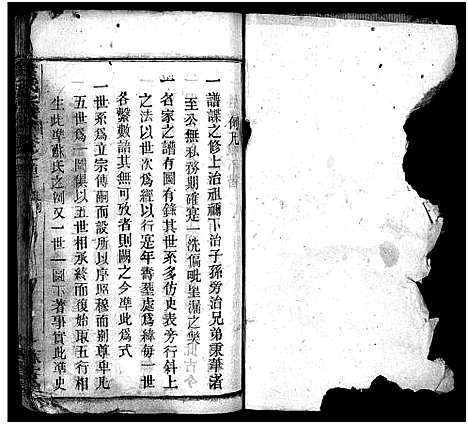 例凡
一譜諜之修上治祖禰下治子孫旁治兄弟秉華渚
至公無私務期確寔一洗偏毗罣漏之獘
一名家之譜有圖有錄其世系多仿史表旁行斜上
之法以世次爲經以行寔年壽塟處爲緯每一世
各繫數語其無可攷者則闕之今準此爲式
一世系爲立宗傳嗣而設所以序昭穆而别尊卑凡
五世爲一圖俱以五世相承終而復始取五行相
生此準蘇氏之例又一世一圖下著事實此準史